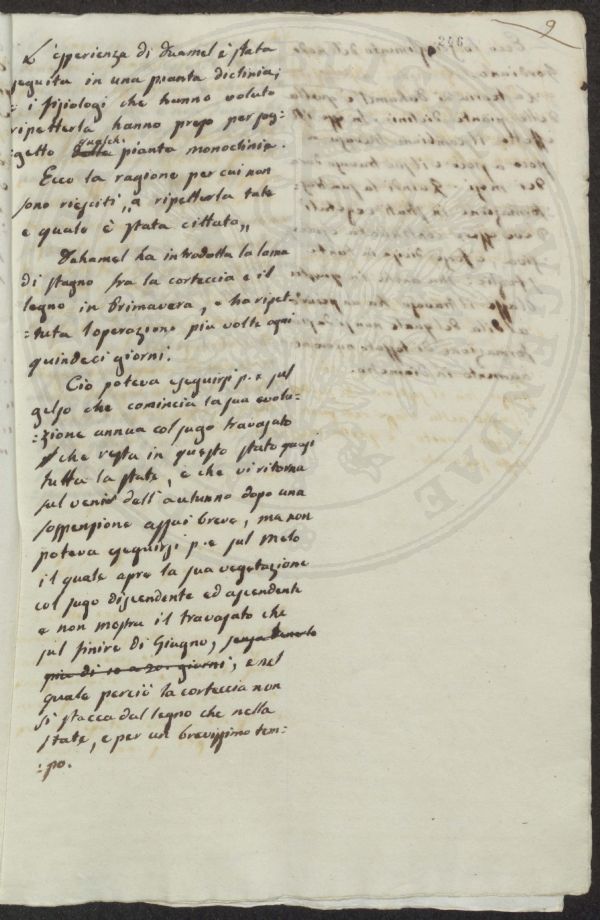 9
L'esperienza di Duamel è stata
eseguita in una pianta diclinia;
i fisiologi che hanno voluto
ripetterla hanno preso per sog=
=getto quasch. pianta monoclinia.
Ecco la ragione per cui non
sono riesciti „ a ripetterla tale
e quale è stata cittata„
Duhamel ha introdotta la lama
di stagno fra la corteccia e il
legno in Primavera, e ha ripet=
=tuta l'operazione più volte ogni
quindeci giorni.
Ciò poteva eseguirsi p. e sul
gelso che comincia la sua evolu=
=zione annua col sugo travasato
che resta in questo stato quasi
tutta la state, e che vi ritorna
sul venir dell'autunno dopo una
sospensione assai breve, ma non
poteva eseguirsi p. e sul Melo
il quale apre la sua vegetazione
col sugo discendente ed ascendente
e non mostra il travasato che
sul finire di Giugno, senza tenerlo
più di 10 a 20 giorni, e nel
quale perciò la corteccia non
si stacca dal legno che nella
state, e per un brevissimo tem=
=po.